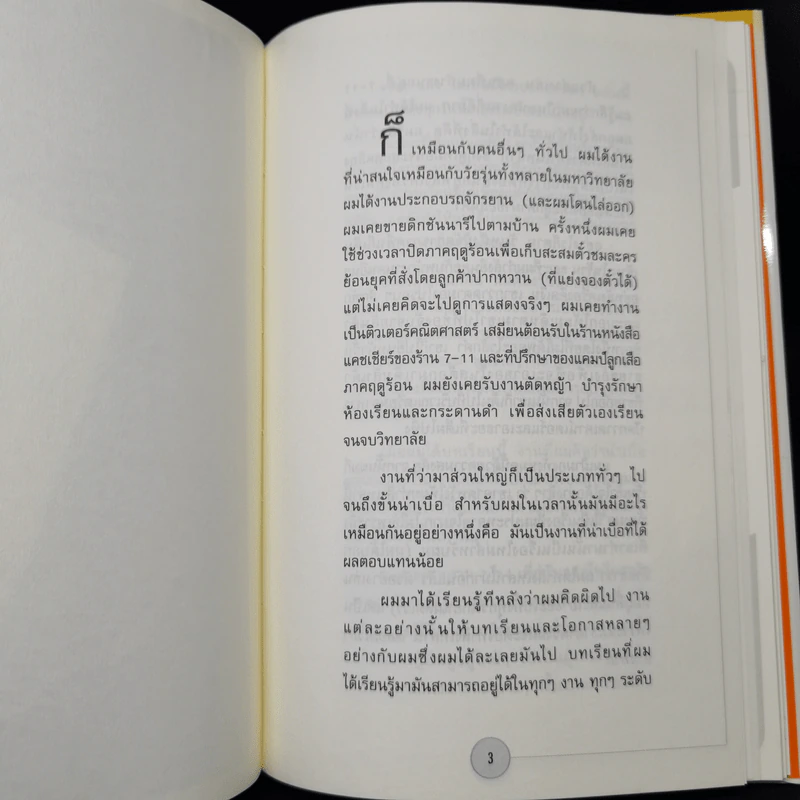 ก็เหมือนกับคนอื่นๆ ทั่วไป ผมได้งาน
ที่น่าสนใจเหมือนกับวัยรุ่นทั้งหลายในมหาวิทยาลัย
ผมได้งานประกอบรถจักรยาน (และผมโดนไล่ออก)
ผมเคยขายดิกชันนารีไปตามบ้าน ครั้งหนึ่งผมเคย
ใช้ช่วงเวลาปิดภาคฤดูร้อนเพื่อเก็บสะสมตั๋วชมละคร
ย้อนยุคที่สั่งโดยลูกค้าปากหวาน (ที่แย่งจองตั๋วได้)
แต่ไม่เคยคิดจะไปดูการแสดงจริงๆ ผมเคยทำงาน
เป็นติวเตอร์คณิตศาสตร์ เสมียนต้อนรับในร้านหนังสือ
แคชเชียร์ของร้าน 7-11 และที่ปรึกษาของแคมป์ลูกเสือ
ภาคฤดูร้อน ผมยังเคยรับงานตัดหญ้า บำรุงรักษา
ห้องเรียนและกระดานดำ เพื่อส่งเสียตัวเองเรียน
จนจบวิทยาลัย
งานที่ว่ามาส่วนใหญ่ก็เป็นประเภททั่วๆ ไป
จนถึงขั้นน่าเบื่อ สำหรับผมในเวลานั้นมันมีอะไร
เหมือนกันอยู่อย่างหนึ่งคือ มันเป็นงานที่น่าเบื่อที่ได้
ผลตอบแทนน้อย
ผมมาได้เรียนรู้ทีหลังว่าผมคิดผิดไป งาน
แต่ละอย่างนั้นให้บทเรียนและโอกาสหลายๆ
อย่างกับผมซึ่งผมได้ละเลยมันไป บทเรียนที่ผม
ได้เรียนรู้มามันสามารถอยู่ได้ในทุกๆ งาน ทุกๆ ระดับ
3